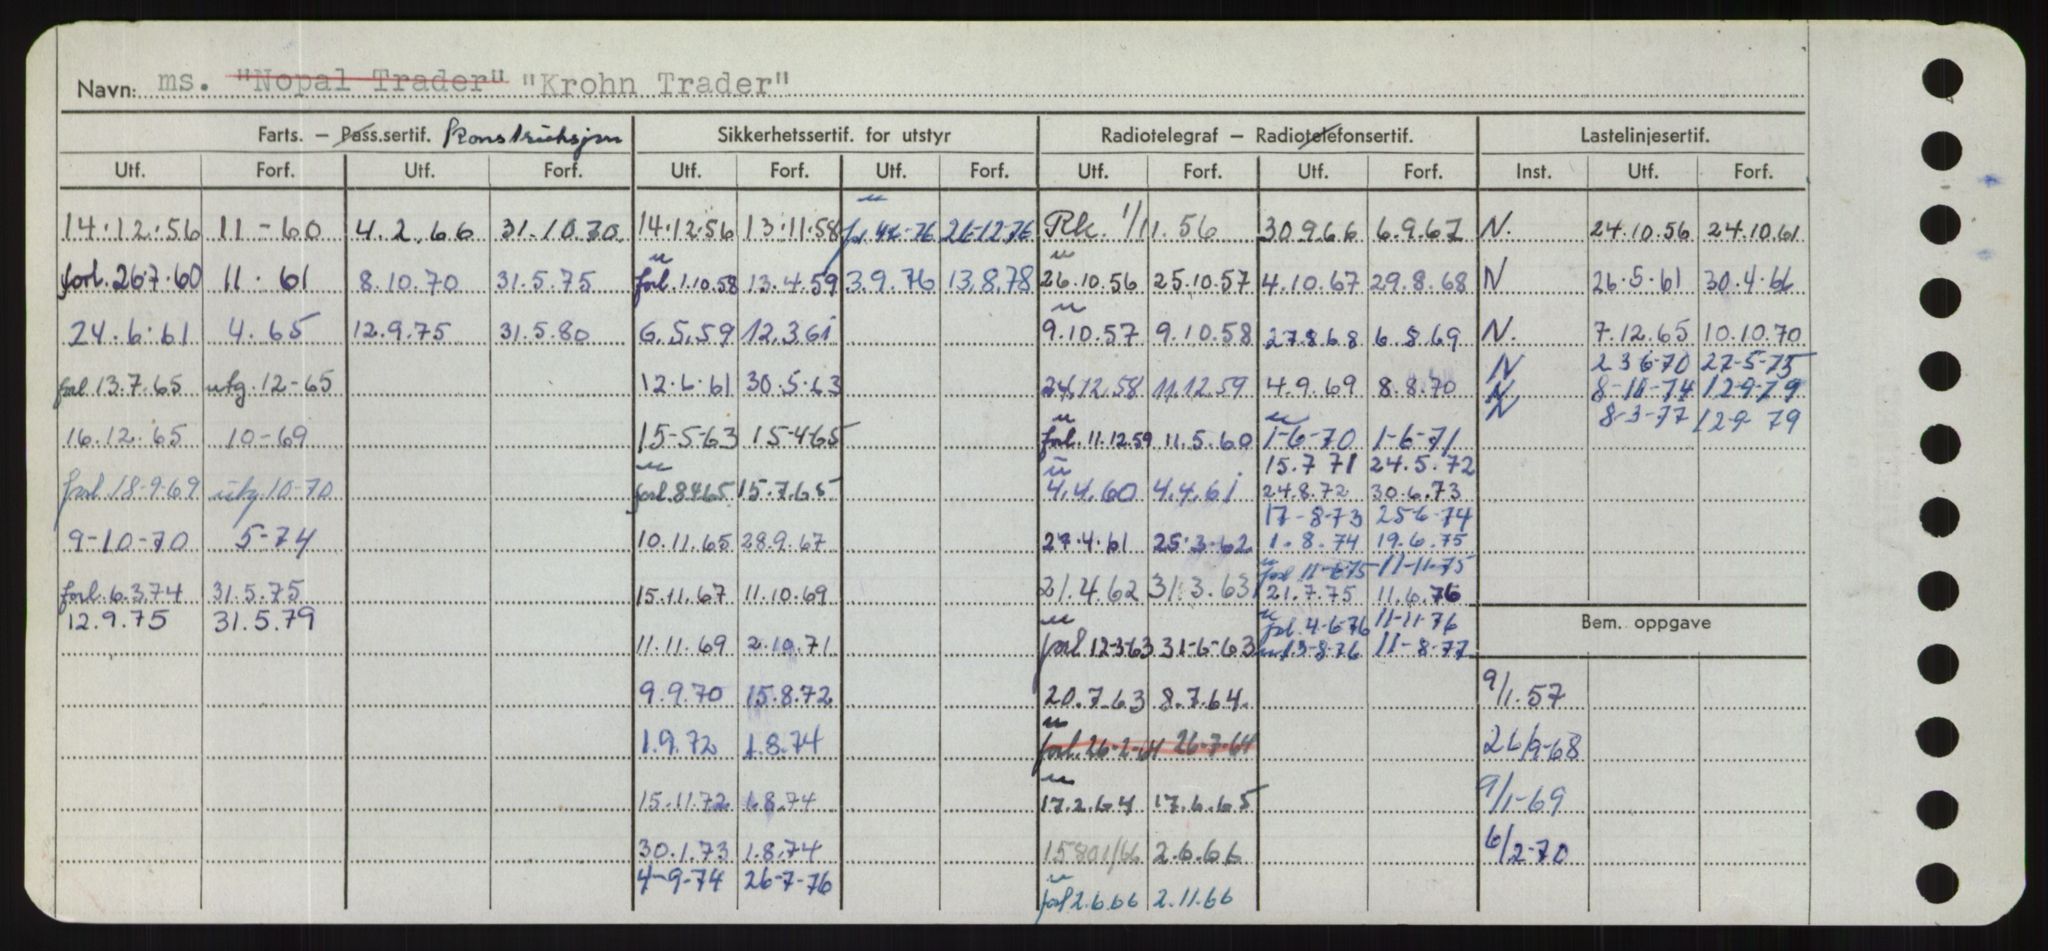 Navn: ms. "Nopal Trader" "Krohn Trader"
Farts. – Pass.sertif. Konstruksjon Sikkerhetssertif. for utstyr Radiotelegraf – Radiotelefonsertif. Lastelinjesertif.
Utf. Forf. Utf. Forf. Utf. Forf. Utf. Forf. Utf. Forf. Utf. Forf. Inst. Utf. Forf.
14.12.56 11-60 4.2.66 31.10.70. 14.12.56 13.11.58 26-12.76 1/11.56 30.9.66 6.9.67 N. 24.10.56 24.10.61
forl. 26.7.60 11.61 8.10.70 31.5.75 forl. 1.10.58 13.4.59 3.9.76 13.8.78 26.10.56 25.10.57 4.10.67 29.8.68 N 26.5.61 30.4.66
24.6.61 4.65 12.9.75 31.5.80 6.5.59 12.3.61 9.10.57 9.10.58 27.8.68 6.8.69 N. 7.12.65 10.10.70
N 23 6-70 27-5-75
forl 13.7.65 utg. 12-65 12.6.61 30.5.63 24.12.58 11.12.59 4.9.69 8.8.70 N 8-11-74 12-9-79
N 8-3-77 129 79
16.12.65 10-69 15-5-63 15-4-65 forl. 11.12.59 11.5.60 1-6-70 1-6-71
15.7 71 24.5.72
forl 18-9-69 utg. 10-70 forl 8465 15.7.65 4.4.60 4.4.61 24.8.72 30.6.73
17-8-73 25-6-74
9-10-70 5-74 10.11.65 28.9.67 27.4.61 25.3.62 1.8.74 19.6.75
forl 11-6-75 11-11-75
forl. 6.3.74 31.5.75 15.11.67 11.10.69 21.4.62 31.3.63 21.7.75 11.6.76
12.9.75 31.5.79 forl. 4-6-76 11-11-76
Bem. oppgave
11.11.69 2.10.71 forl 12-3-63 31-6-63 13-8-76 11-8-77
9.9.70 15.8.72 20.7.63 8.7.64. 9/1.57
1.9.72 1.8.74 forl. 26-2-64 26-7-64 26/9-68
15.11.72 1.8.74 17.2.64 17.6.65 9/1-69
30.1.73 1.8.74 2.6.66 6/2-70
4-9-74 26-7-76
forl 2.6.66 2.11.66